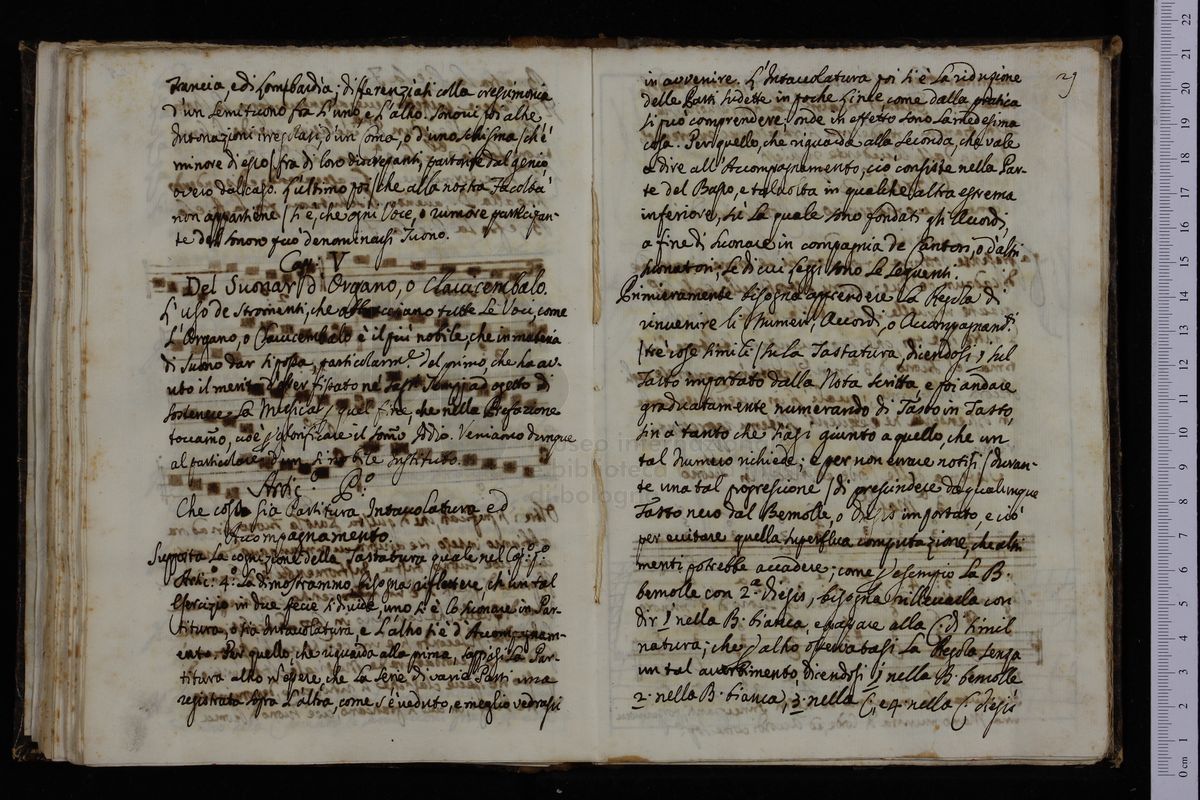 Francia, e di Lombardia; differenziati colla
d'un Semituono fra L'uno, e L'altro. Sonovi poi altre
Intonazioni irregolari, d'un Coma, o d'uno schisma (ch'è
minore di esso) fra di loro discrepanti, partorite dal genio,
overo dal caso. L'ultimo poi (che alla nostra Facoltà
non appartiene) si è, che ogni Voce, o rumore participan-
te del sonoro può denominarsi Tuono.
Cap: V
Del Suonar d'Organo, o Clavacembalo.
L'uso de Stromenti, che abbracciano tutte Le Voci, come
L'Organo, o Clavicembalo è il più nobile, che in materia
di Suono dar si possa, particolarm.e del primo, che ha av-
uto il merito d'esser fissato ne Sagri Tempj ad ogetto di
sostenere La Musica, quel fine, che nella Prefazione
toccamo, cioè glorificare il somo Iddio. Veniamo dunque
al particolare d'un sì nobile Instituto.
Artic.o P.o
Che cosa sia Partitura Intavolatura ed
Accompagnamento.
Supposta La cognizione della Tastatura quale nel Cap: p.o
Artic.o 4.o La dimostrammo, bisogna riflettere, che un tal
Esercizio in due specie si divide, uno si è Lo suonare in Par-
titura, o sia Intavolatura, e L'altro si è d'Accompagnam-
ento. Per quello, che riguarda alla prima, sappiasi La Par-
titura altro n'essere, che La serie di varie Parti una
registrata sopra L'altra, come s'è veduto, e meglio vedrassi
29
in avvenire. L'Intavolatura poi si è La riduzione
delle Parti sudette in poche Linee come dalla pratica
si può comprendere, onde in effetto sono La medesima
cosa. Per quello, che riguarda alla seconda, che vale
a dire all'Accompagnamento, ciò consiste nella Par-
te del Basso, e talvolta in qualche altra estrema
inferiore, sù La quale sono fondati gli Accordi,
a fine di suonare in compagnia de Cantori, o d'altri
suonatori, Le di cui Leggi sono Le seguenti.
Primieramente bisogna apprendere La Regola di
rinvenire li Numeri, Accordi, o Accompagnam.ti
(trè cose simili) sù La Tastatura, dicendosi 1 sul
Tasto importato dalla Nota scritta, e poi andare
gradatamente numerando di Tasto in Tasto,
sin a tanto che siasi giunto a quello, che un
tal Numero richiede; e per non errare notisi (duran-
te una tal progressione) di prescindere da qualunque
Tasto nero dal Bemolle, o Diesis importato, e ciò
per evitare quella superflua computazione, che altri
menti potrebbe accadere; come p esempio La B.
bemolle con 2.a Diesis, bisogna sullevarla con
dir 1 nella B. bianca, e passare alla C d simil
natura; che p altro osservatasi La Regola senza
un tal avvertimento, dicendosi 1 nella B. bemolle
2. nella B. bianca, 3 nella C, e 4. nella C. diesis